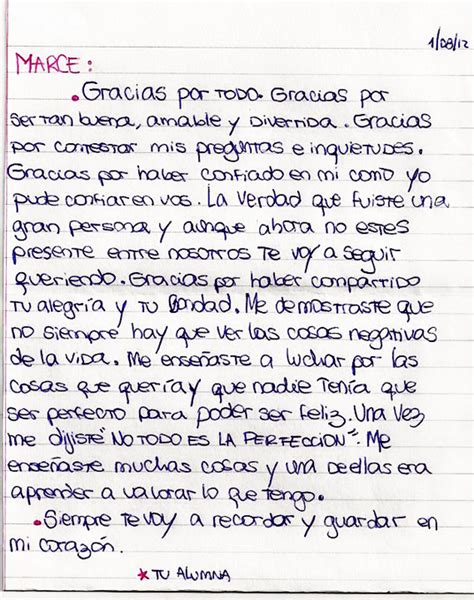 1/08/12
MARCE:
• Gracias por TODO. Gracias por
ser tan buena, amable y Divertida. Gracias
por contestar mis preguntas e inquietudes.
Gracias por haber confiado en mi como yo
pude confiar en vos. La verdad que fuiste una
gran persona y aunque ahora no estes
presente entre nosotros te voy a seguir
queriendo. Gracias por haber compartido
tu alegría y tu Bondad. Me demostraste que
no siempre hay que ver las cosas negativas
de la vida. Me enseñaste a luchar por las
cosas que quería y que nadie tenía que
ser perfecto para poder ser feliz. Una vez
me dijiste "NO TODO ES LA PERFECCION". Me
enseñaste muchas cosas y una de ellas era
aprender a valorar lo que tengo.
• Siempre te voy a recordar y guardar en
mi corazón.
* TU ALUMNA